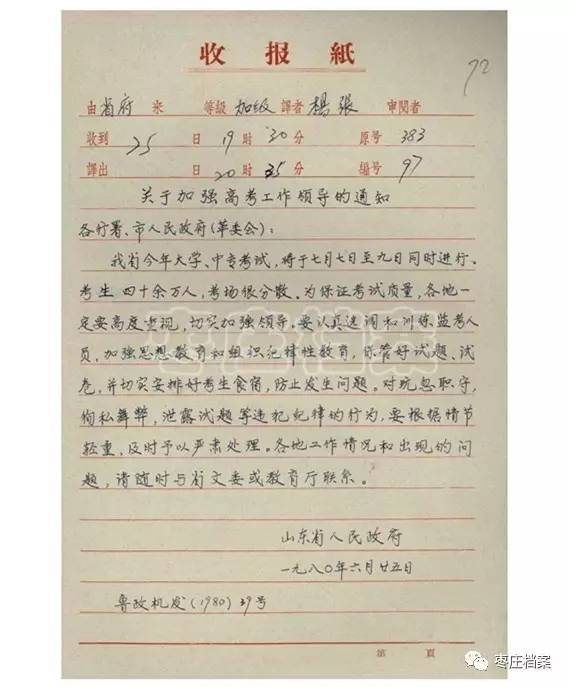 收报紙
72
由 省府 来 等級 加级 譯者 楊 張 审閱者
收到 25 日 19 时 30 分 原号 383
譯出 日 20 时 35 分 編号 97
关于加强高考工作领导的通知
各行署、市人民政府(革委会):
我省今年大学、中专考试,将于七月七日至九日同时进行。
考生四十余万人,考场很分散。为保证考试质量,各地一
定要高度重视,切实加强领导。要认真选调和训练监考人
员,加强思想教育和组织纪律性教育,保管好试题、试
卷,并切实安排好考生食宿,防止发生问题。对玩忽职守、
徇私舞弊,泄露试题等违犯纪律的行为,要根据情节
轻重,及时予以严肃处理。各地工作情况和出现的问
题,请随时与省文委或教育厅联系。
山东省人民政府
一九八〇年六月廿五日
鲁政机发(1980)39号
第 頁
枣庄档案
枣庄档案